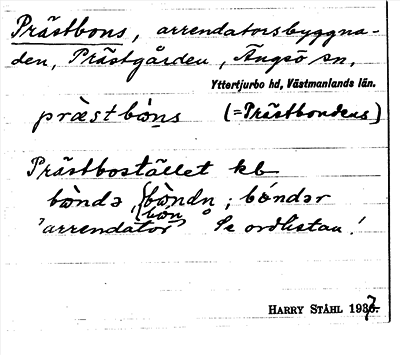 Prästbons, arrendatorsbyggna-
den, Prästgården, Ängsö sn,
Yttertjurbo hd, Västmanlands län.
præ̀stbὼns (=Prästbondens)
Prästbostället kb
bὼndə, {bὼndn ; bóndər
bὼn
'arrendator' Se ordlistan!
HARRY STÅHL 1937.